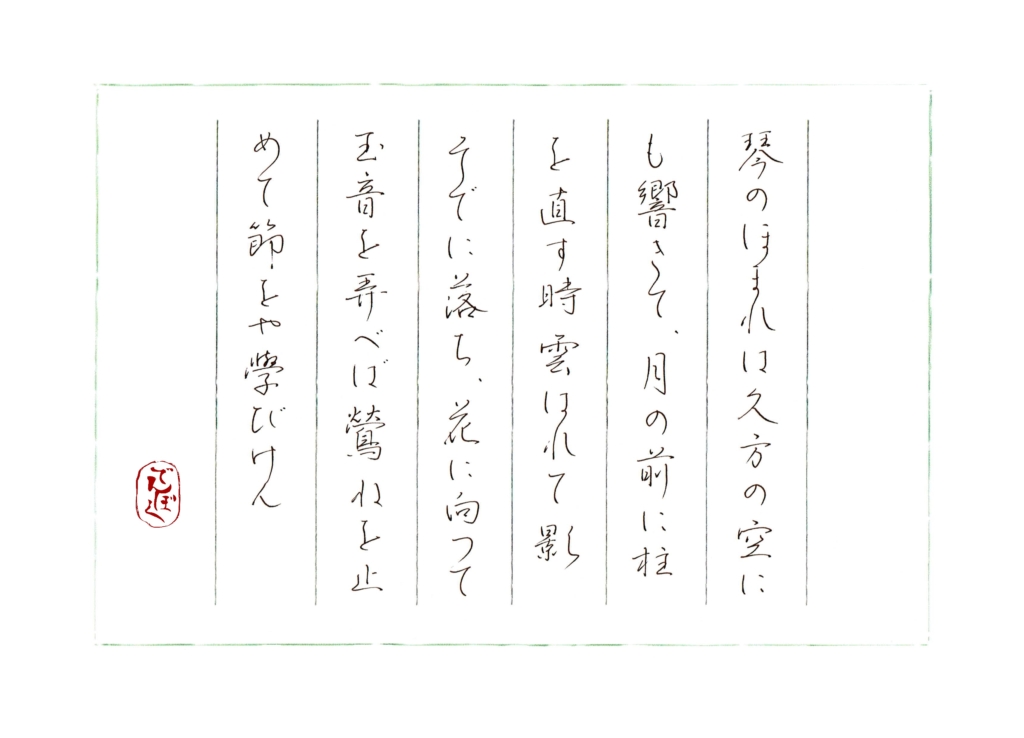 琴のほまれは久方の空に
も響きて、月の前に柱
を直す時雲はれて影
そでに落ち、花に向つて
玉音を弄べば鶯ねを止
めて節をや學びけん